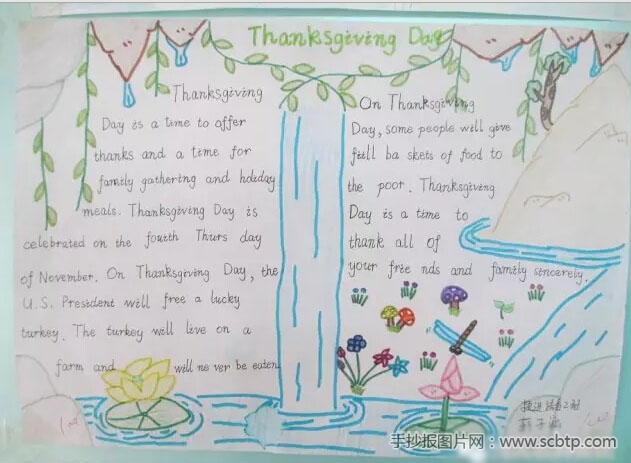 Thanksgiving Day
Thanksgiving
Day is a time to offer
thanks and a time for
family gathering and holiday
meals. Thanksgiving Day is
celebrated on the fourth Thurs day
of November. On Thanksgiving Day, the
U.S. President will free a lucky
turkey. The turkey will live on a
farm and will never be eaten
On Thanksgiving
Day, some people will give
full ba skets of food to
the poor. Thanksgiving
Day is a time to
thank all of
your frie nds and family sincerely.
手抄报图片网·www.scbtp.com